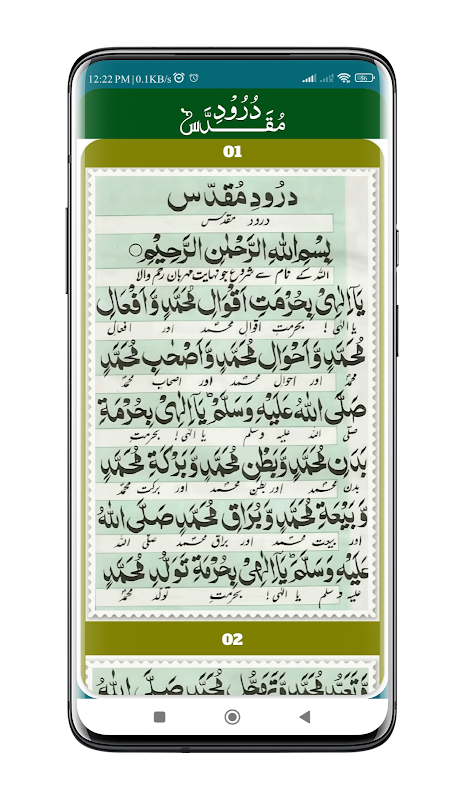 12:22 PM | 0.1KB/s
دُرُوْدِ مُقَدَّسْ
01
دُرُودِ مُقدّس
درود مقدس
بِسْمِ اللهِ الرَّحْمٰنِ الرَّحِيْمِ
اللہ کے نام سے شروع جو نہایت مہربان رحم والا
يَآ اِلٰهِىْ بِحُرْمَتِ اَقْوَالِ مُحَمَّدٍ وَّ اَفْعَالِ
یا الٰہی! بحرمتِ اقوال محمد اور افعال
مُحَمَّدٍ وَّ اَحْوَالِ مُحَمَّدٍ وَّ اَصْحٰبِ مُحَمَّدٍ
محمد اور احوال محمد اور اصحاب محمد
صَلَّى اللهُ عَلَيْهِ وَسَلَّمَ يَآ اِلٰهِىْ بِحُرْمَةِ
صلی اللہ علیہ وسلم یا الٰہی! بحرمتِ
بَدَنِ مُحَمَّدٍ وَّ بَطْنِ مُحَمَّدٍ وَّ بَرْكَةِ مُحَمَّدٍ
بدن محمد اور بطن محمد اور برکت محمد
وَّ بَيْعَةِ مُحَمَّدٍ وَّ بُرَاقِ مُحَمَّدٍ صَلَّى اللهُ
اور بیعت محمد اور براق محمد صلی اللہ
عَلَيْهِ وَسَلَّمَ يَآ اِلٰهِىْ بِحُرْمَةِ تَوَلُّدِ مُحَمَّدٍ
علیہ وسلم یا الٰہی! بحرمتِ تولد محمد
02
وَّ تَعَبُّدِ مُحَمَّدٍ مُحَمَّدٍ صَلَّى اللهُ